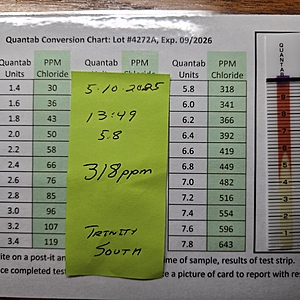 Quantab Conversion Chart: Lot #4272A, Exp. 09/2026
Quantab Units PPM Chloride Quantab PPM Quantab Units PPM Chloride
1.4 30 5.8 318
1.6 36 6.0 341
1.8 43 6.2 366
2.0 50 6.4 392
2.2 58 6.6 419
2.4 66 6.8 449
2.6 76 7.0 482
2.8 85 7.2 516
3.0 96 7.4 554
3.2 107 7.6 596
3.4 119 7.8 643
5.10.2025
13:49
5.8
318ppm
TRINITY
SOUTH
ite on a post-it an me of sample, results of test strip.
ce completed test e a picture of card to report with res
QUANTAB